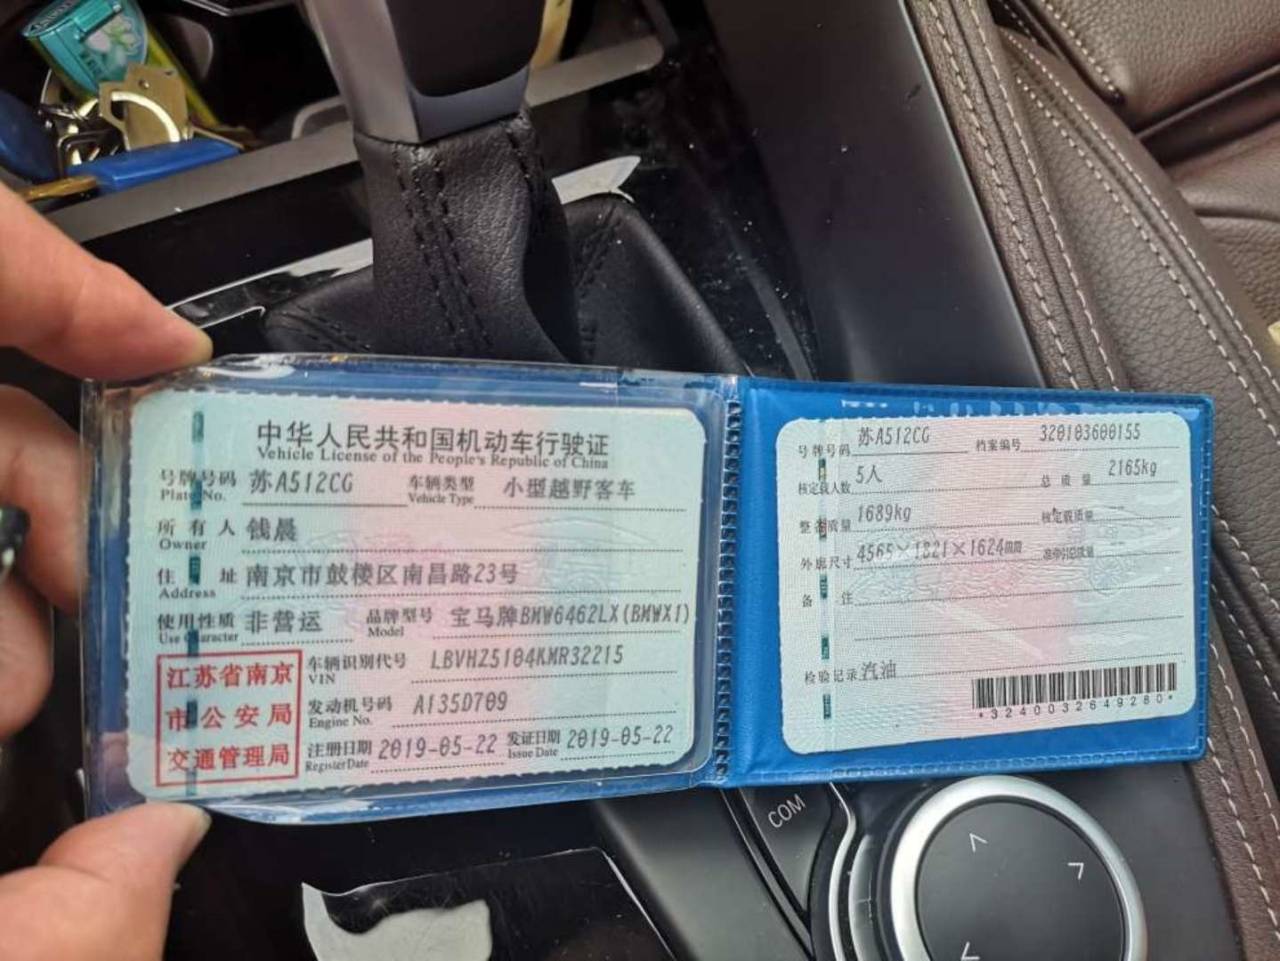 中华人民共和国机动车行驶证
Vehicle License of the People's Republic of China
号牌号码 苏A512CG 车辆类型 小型越野客车
Plate No. Vehicle Type
所有人 钱晨
Owner
住址 南京市鼓楼区南昌路23号
Address
使用性质 非营运 品牌型号 宝马牌BMW6462LX(BMWX1)
Use Character Model
江苏省南京
市公安局
交通管理局
车辆识别代号 LBVHZ5104KMR32215
VIN
发动机号码 A135D709
Engine No.
注册日期 2019-05-22 发证日期 2019-05-22
Register Date Issue Date
号牌号码 苏A512CG 档案编号 320103600155
核定载人数 5人 总质量 2165kg
整备质量 1689kg 核定载质量 --
外廓尺寸 4565×1821×1624mm 准牵引总质量 --
备注
检验记录 汽油
*3240032649280*
COM